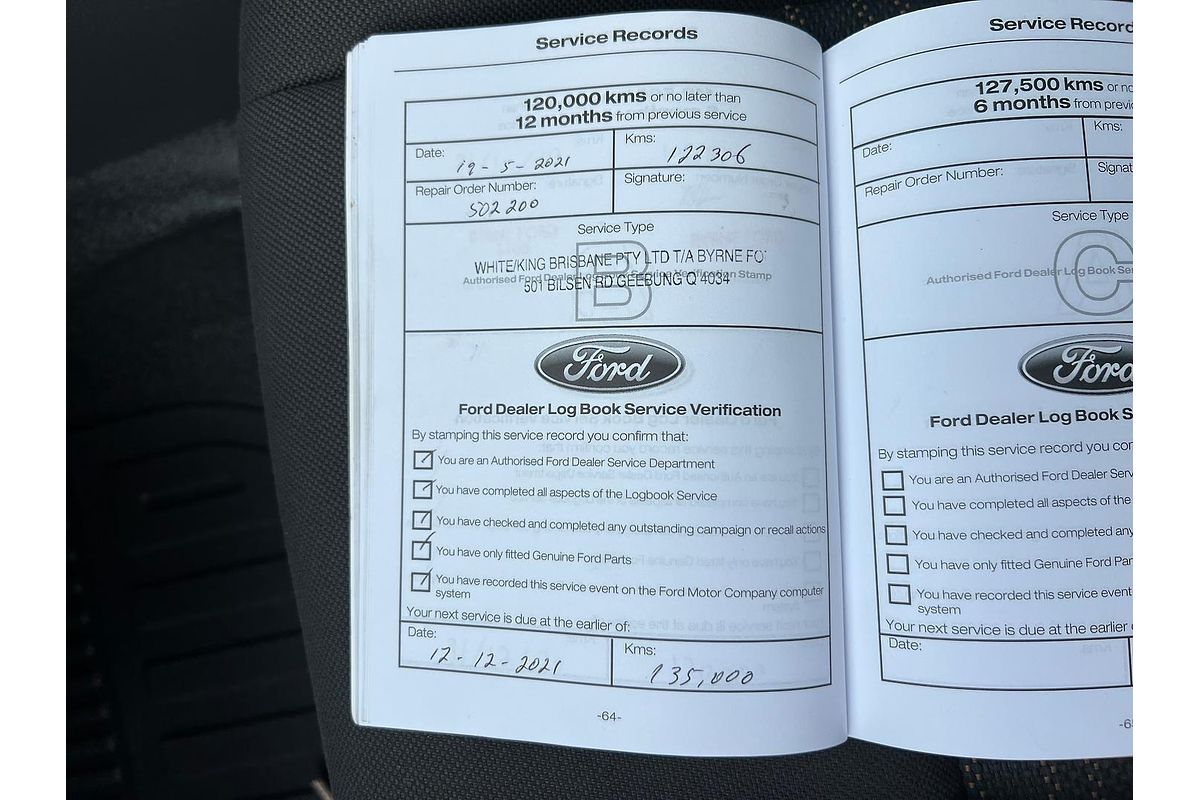 Service Records
120,000 kms or no later than
12 months from previous service
Date: 19-5-2021
Kms: 122306
Repair Order Number: 502200
Signature:
Service Type
B
WHITE/KING BRISBANE PTY LTD T/A BYRNE FO
Authorised Ford Dealer Log Book Service Verification Stamp
501 BILSEN RD GEEBUNG Q 4034
Ford
Ford Dealer Log Book Service Verification
By stamping this service record you confirm that:
You are an Authorised Ford Dealer Service Department
You have completed all aspects of the Logbook Service
You have checked and completed any outstanding campaign or recall actions
You have only fitted Genuine Ford Parts
You have recorded this service event on the Ford Motor Company computer
system
Your next service is due at the earlier of:
Date: 12-12-2021
Kms: 135,000
-64-
Service Record
127,500 kms or no
6 months from previo
Date:
Kms:
Repair Order Number:
Signat
Service Type
C
Authorised Ford Dealer Log Book Ser
Ford
Ford Dealer Log Book S
By stamping this service record you con
You are an Authorised Ford Dealer Serv
You have completed all aspects of the
You have checked and completed any
You have only fitted Genuine Ford Par
You have recorded this service event
system
Your next service is due at the earlier o
Date: